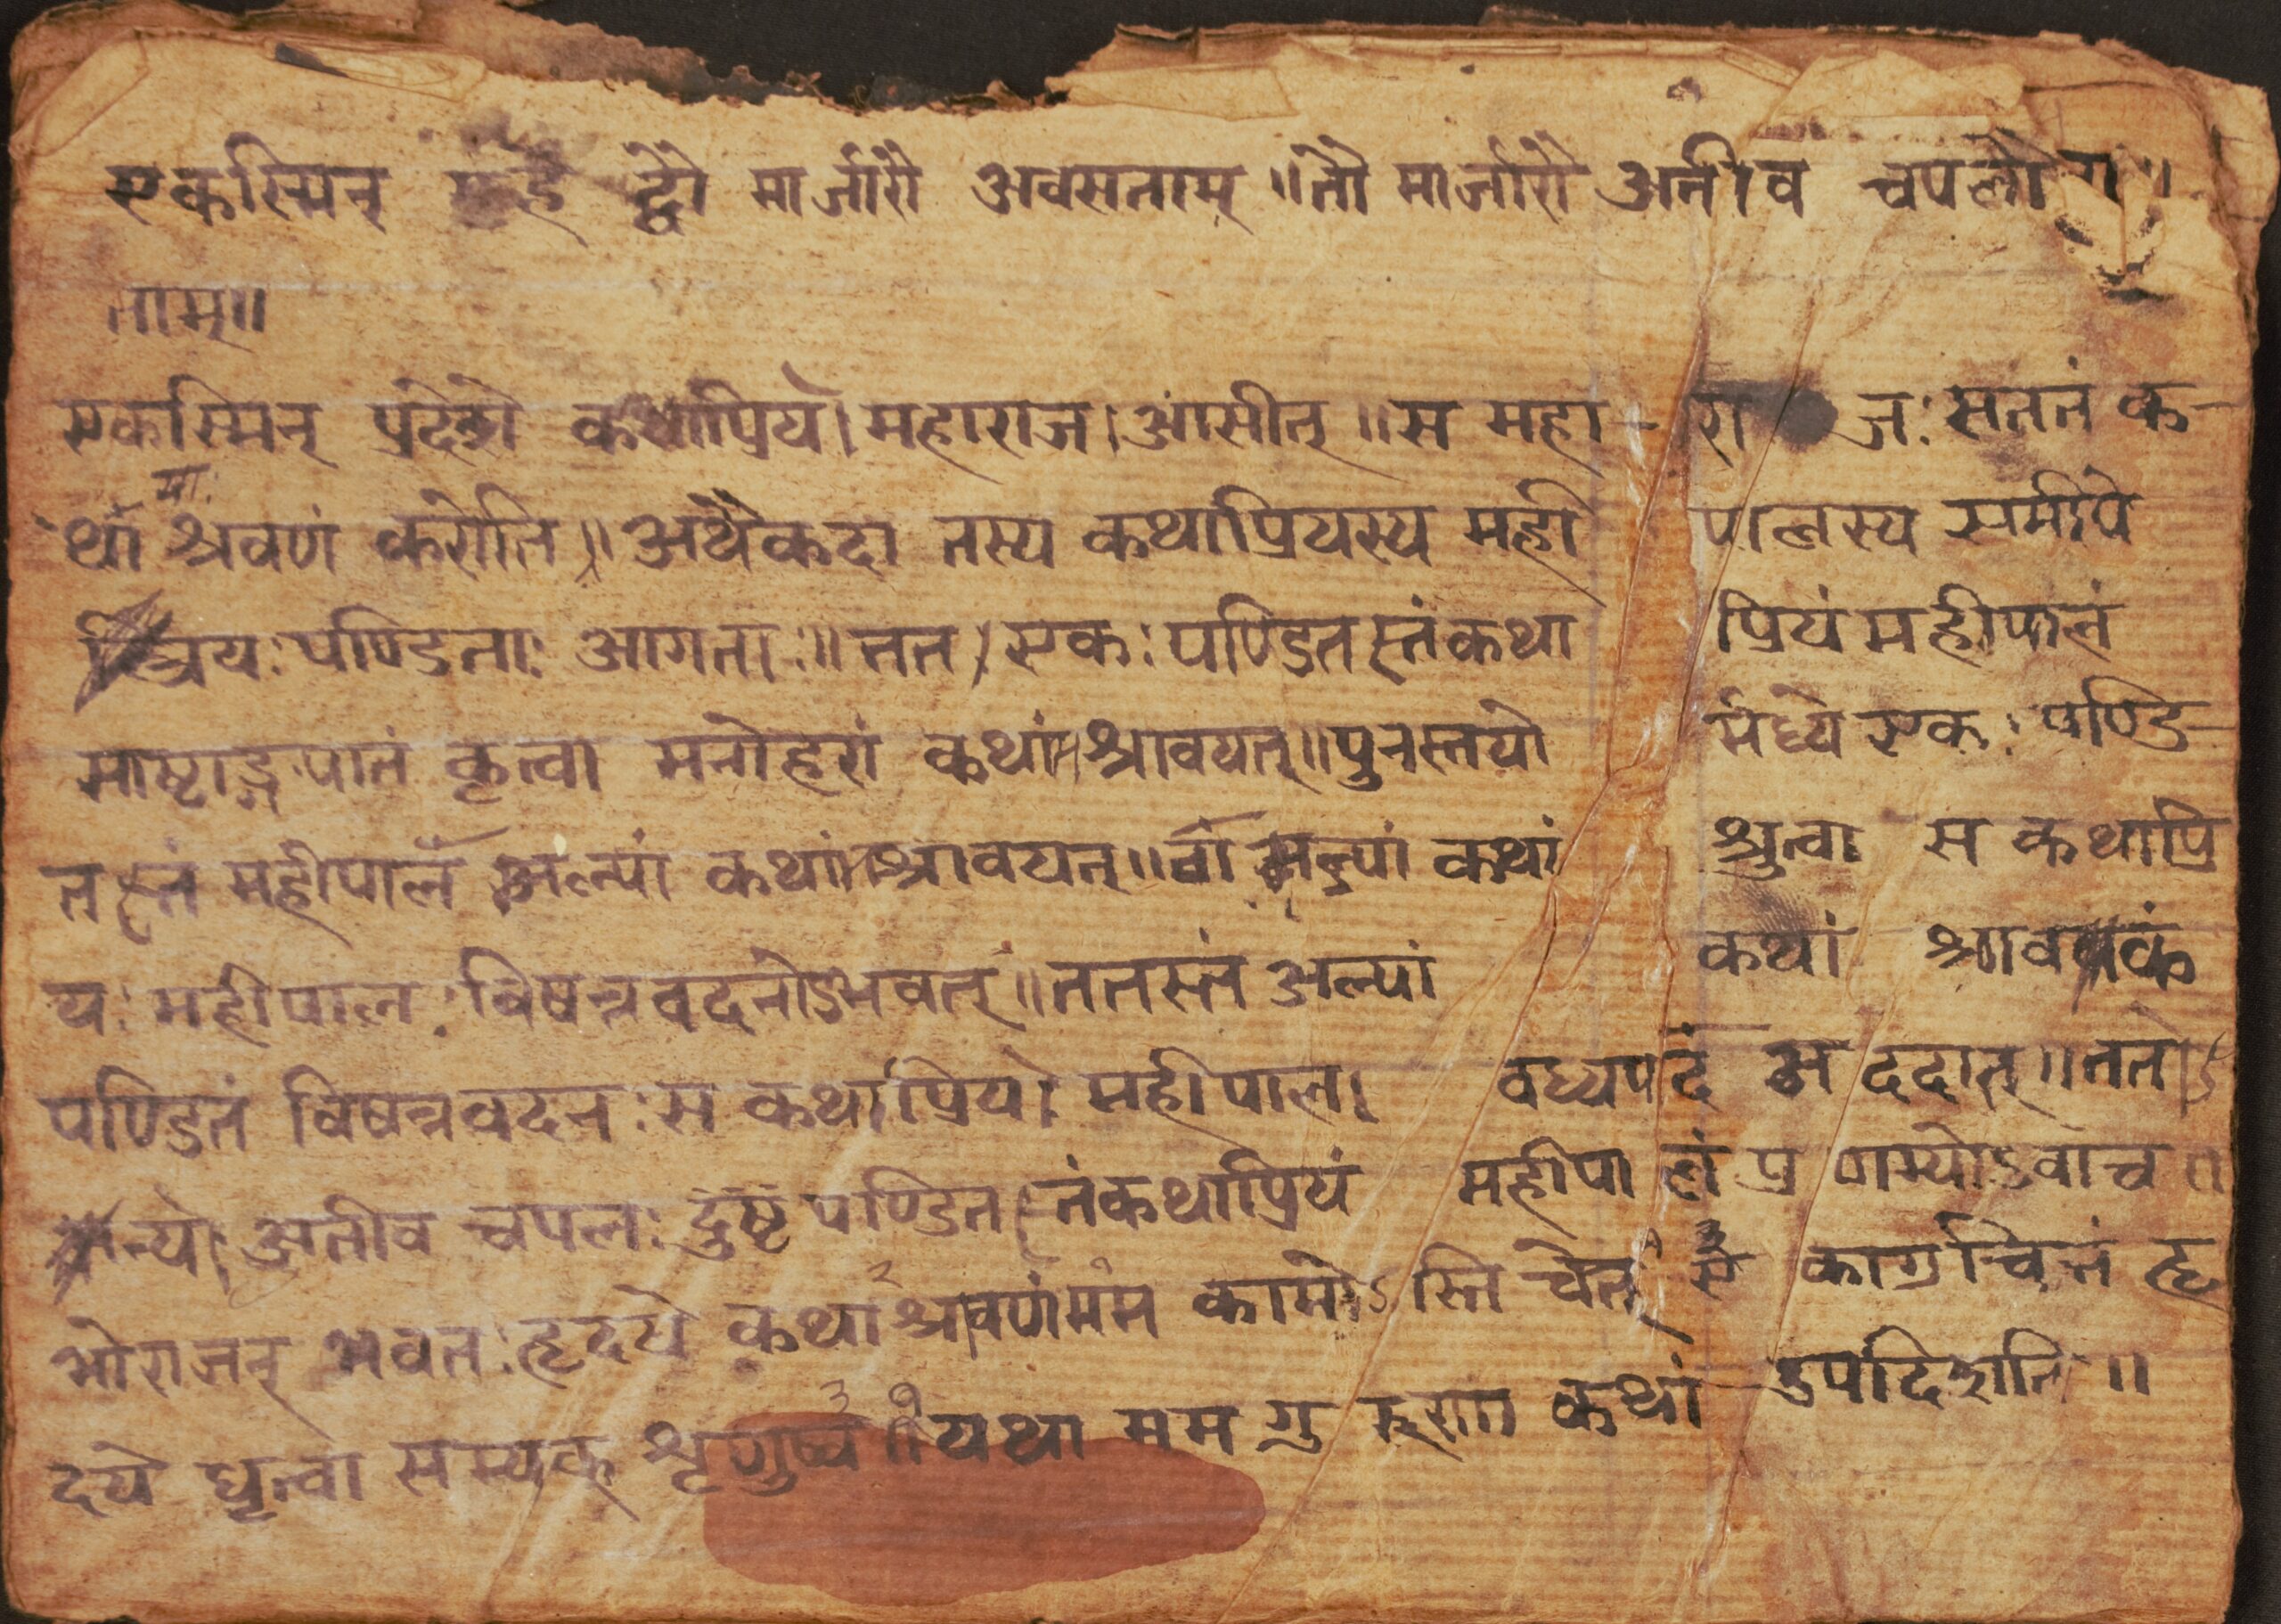 एकस्मिन् गृहे द्वौ मार्जारौ अवसताम् ॥ तौ मार्जारौ अतीव चपलौ
ताम्॥
एकस्मिन् प्रदेशे कथाप्रियो महाराज आसीत् ॥ स महाराजः सततं क-
थायाः श्रवणं करोति ॥ अथैकदा तस्य कथाप्रियस्य महीपालस्य समीपे
त्रयः पण्डिताः आगताः ॥ तत एकः पण्डितस्तं कथाप्रियं महीपालं
माष्टाङ्गपातं कृत्वा मनोहरां कथां श्रावयत् ॥ पुनस्तयोर्मध्ये एकः पण्डि-
तस्तं महीपालं अल्पां कथां श्रावयत् ॥ तां अल्पां कथां श्रुत्वा स कथाप्रि
यः महीपालः विषन्नवदनोऽभवत् ॥ ततस्तं अल्पां कथां श्रावयकं
पण्डितं विषन्नवदनः स कथाप्रियो महीपालो वध्यपदं अददात् ॥ ततोऽ
न्यो अतीव चपलः दुष्ट पण्डितस्तं कथाप्रियं महीपालं प्रणम्योऽवाच ॥
भो राजन् भवतः हृदये कथा श्रवणं मम कामोऽस्ति चेत् एकाग्रचित्तं हृ
दये धृत्वा सम्यक् शृणुष्व ॥ यथा मम गुरूणा कथां उपदिशति ॥